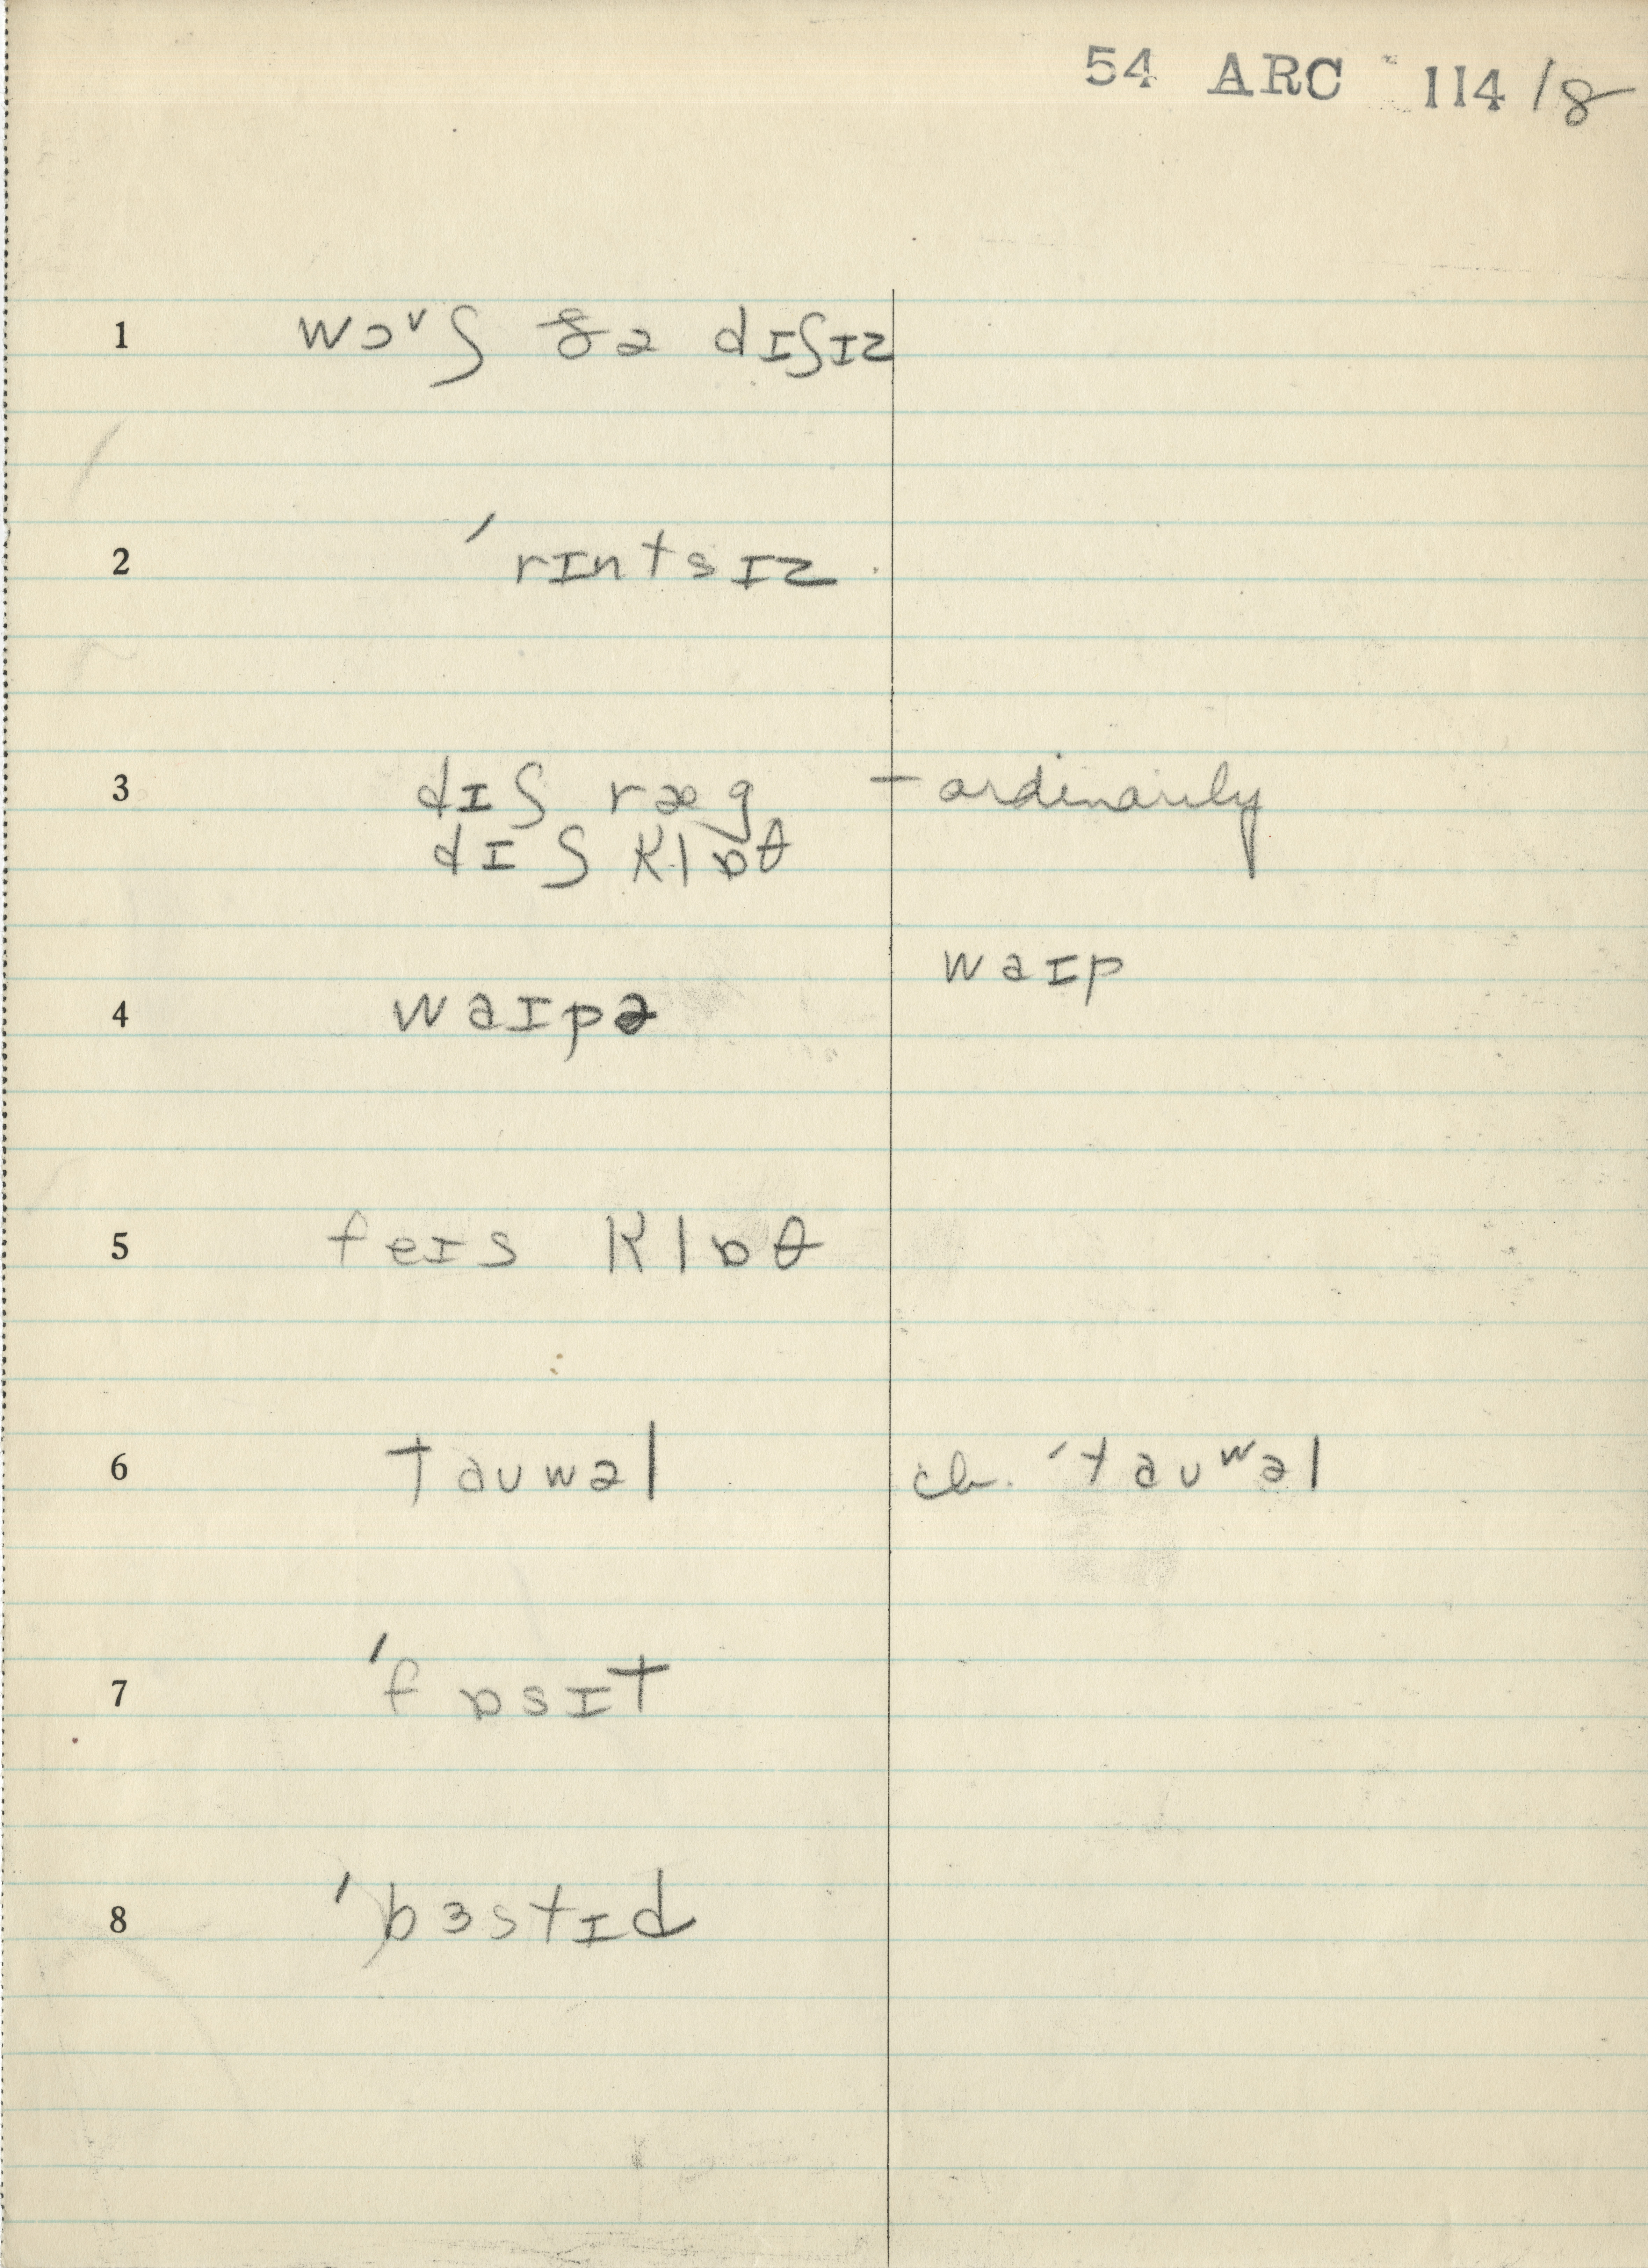 54 ARC 114/8
1 wɔᵛʃ ðə dɪʃɪz
2 ˈrɪntsɪz
3 dɪʃ ræg – ordinarily
dɪʃ klɒθ
waɪp
4 waɪpə
5 feɪs klɒθ
6 taʊwəl ch. ˈtaʊʷəl
7 ˈfɒsɪt
8 ˈbɜstɪd